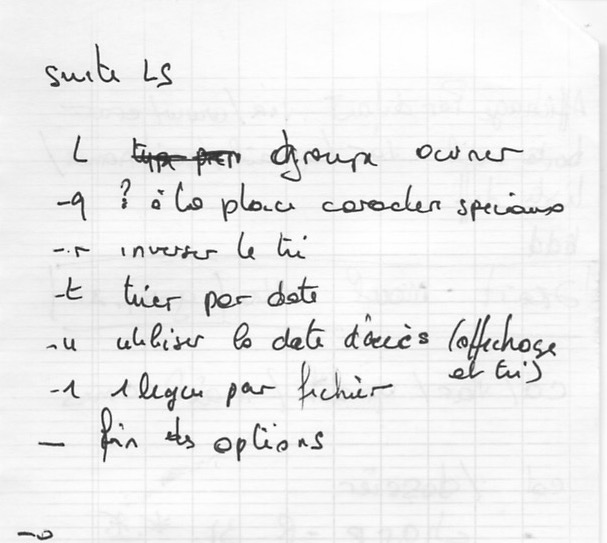 suite LS
L groupe owner
-q ? à la place caracter speciaux
-r inverser le tri
-t trier par date
-u utiliser la date d'accès (affichage
et tri)
-1 1 ligne par fichier
— fin des options